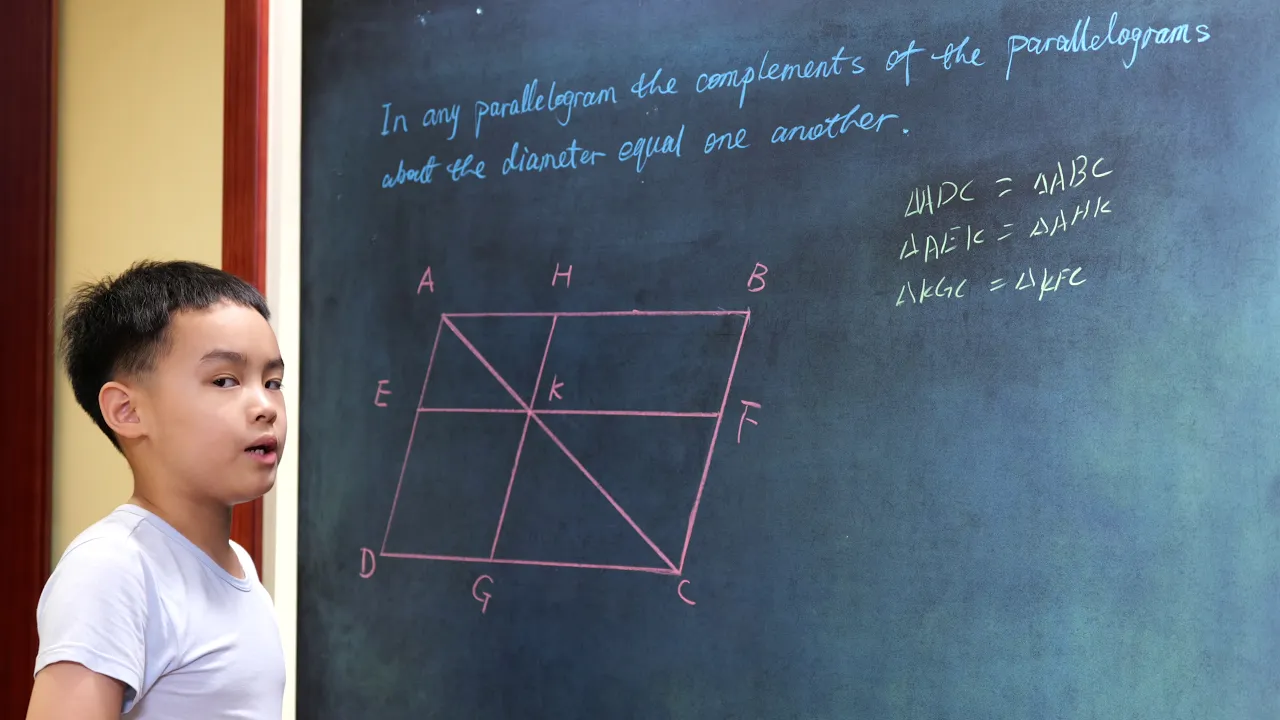 In any parallelogram the complements of the parallelograms
about the diameter equal one another.
ΔADC = ΔABC
ΔAEK = ΔAHK
ΔKGC = ΔKFC
A H B
E K F
D G C